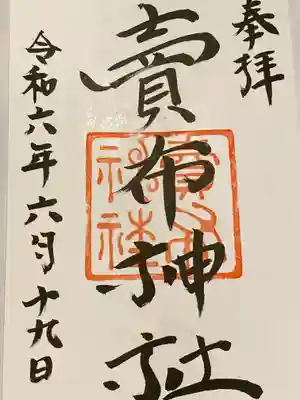 奉拝
賣布神社
令和六年六月十九日
賣布神社